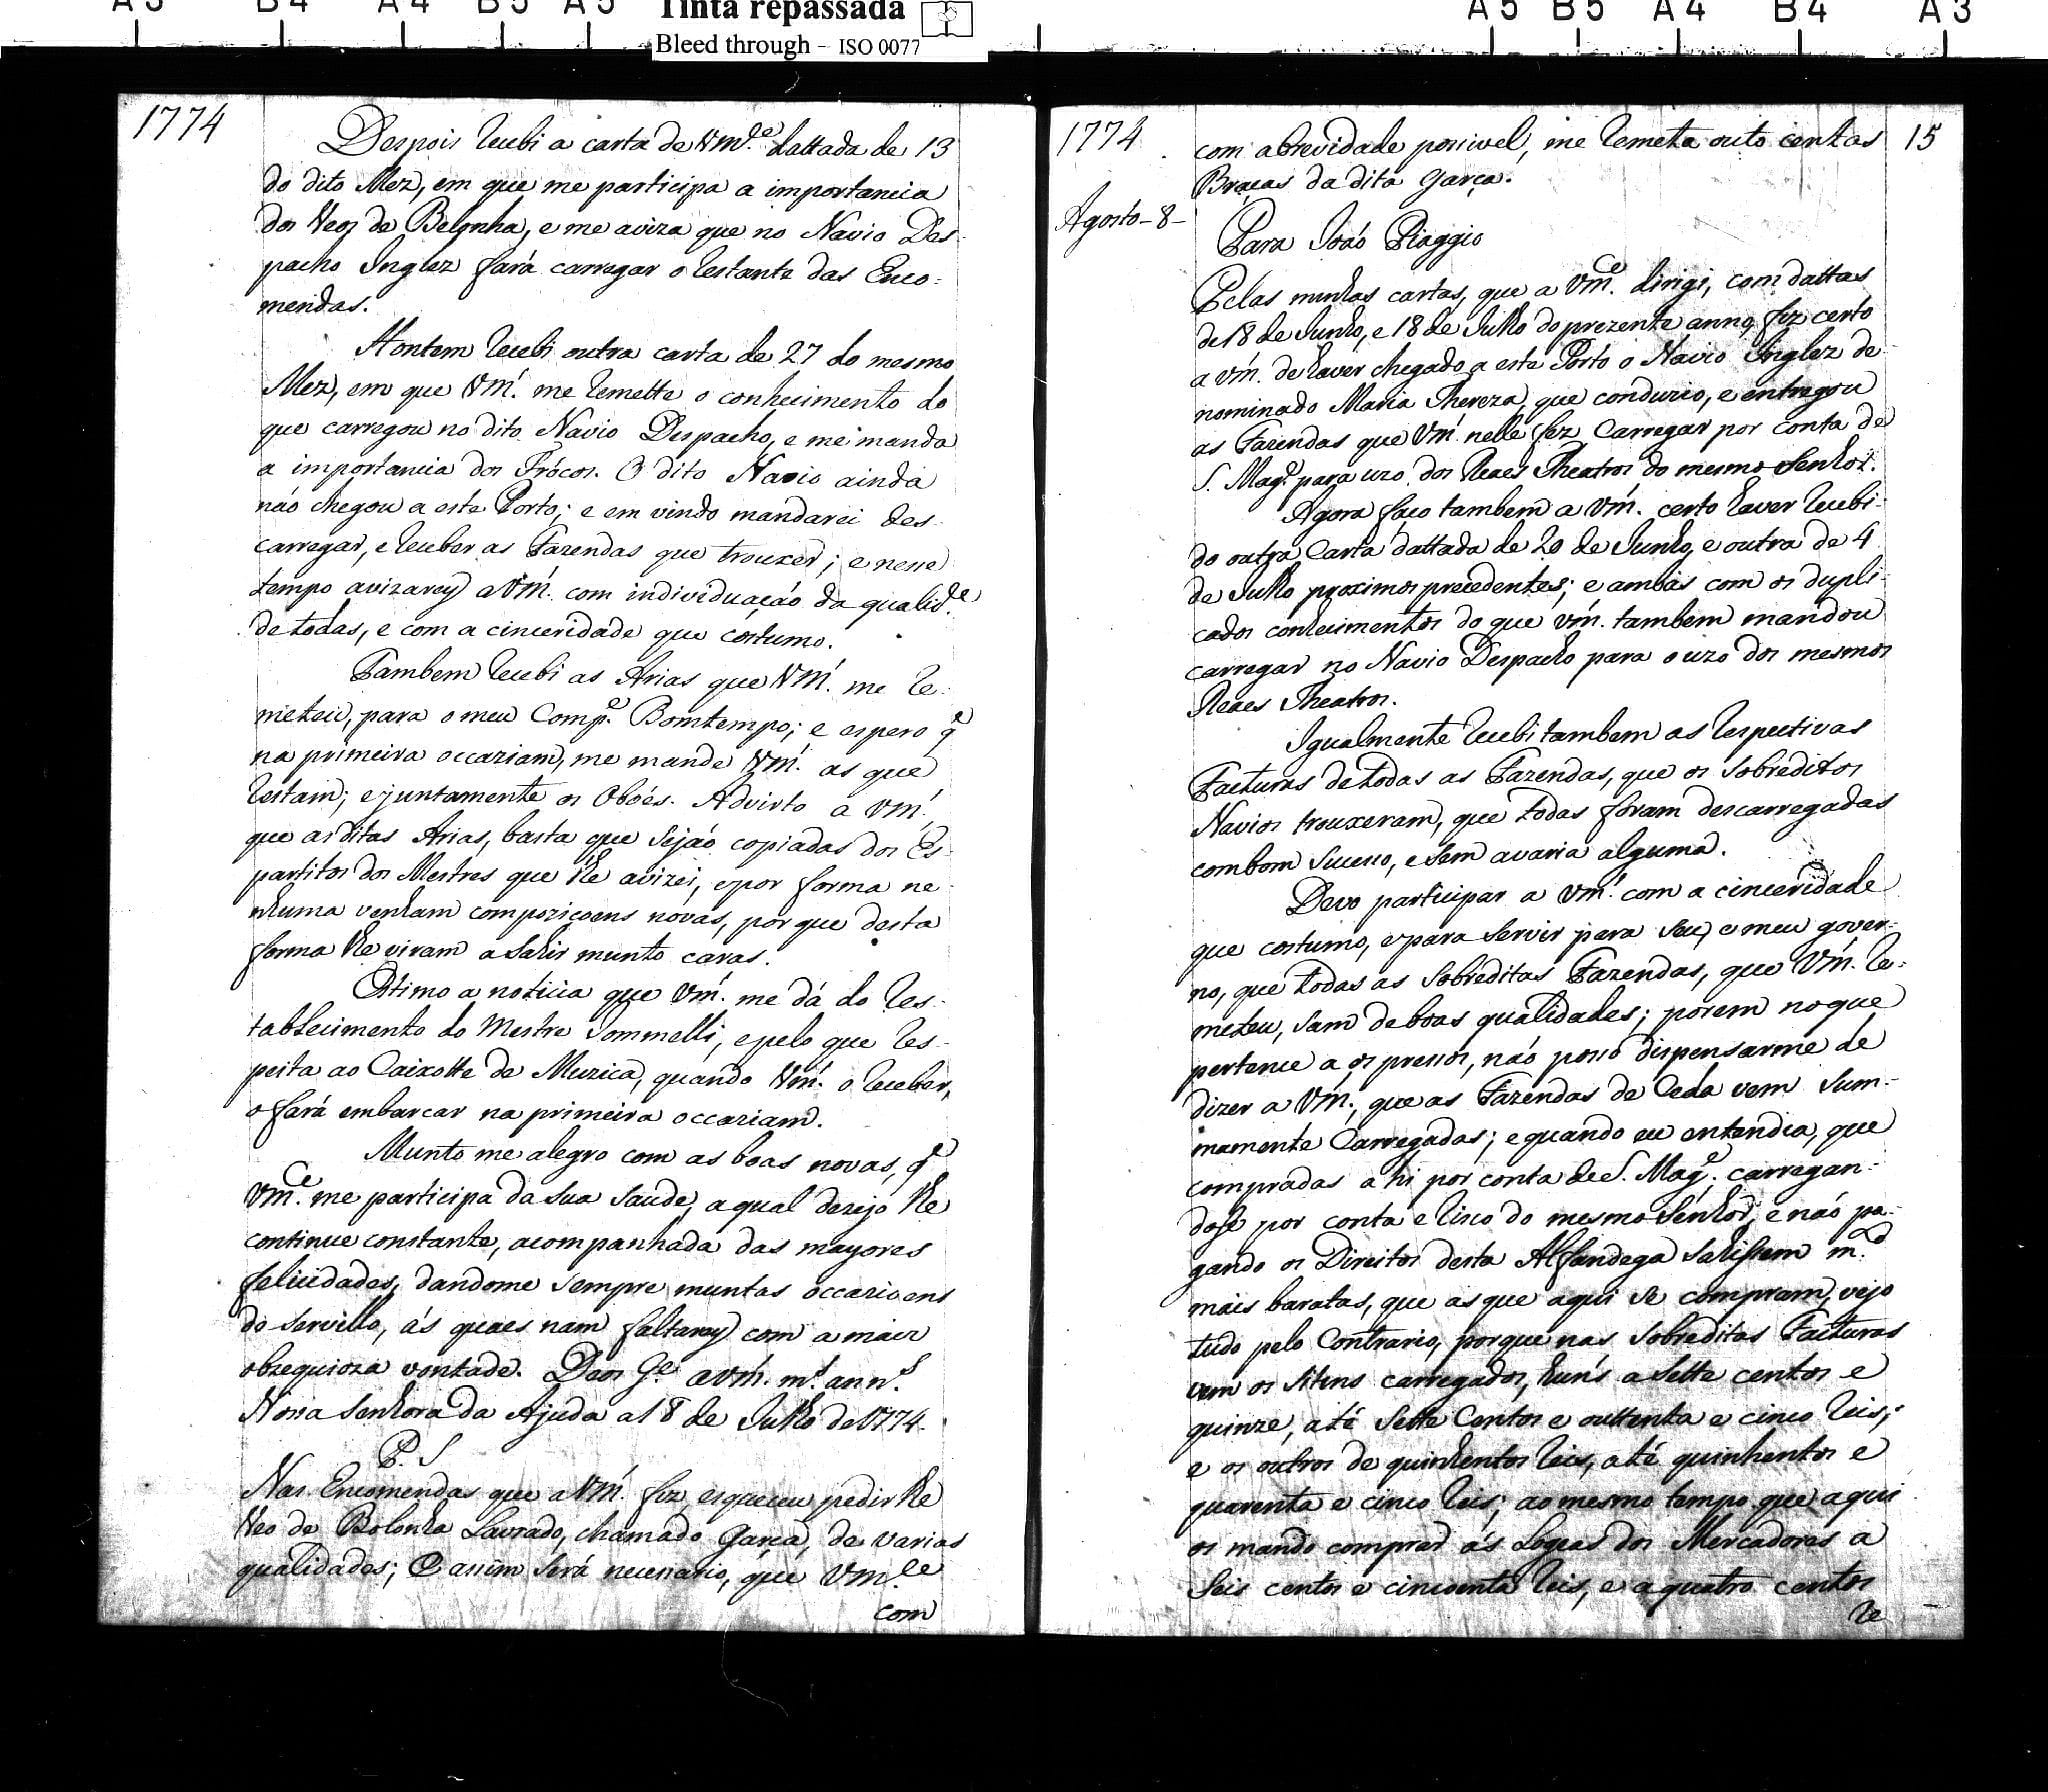 A3 B4 A4 B5 A5 Tinta repassada A5 B5 A4 B4 A3
Bleed through - ISO 0077
1774
Despois recebi a carta de Vm.ce dattada de 13
do dito Mez, em que me participa a importancia
dos Veos de Belonha, e me aviza que no Navio Des-
pacho Inglez fará carregar o restante das Enco-
mendas.
Hontem recebi outra carta de 27 do mesmo
Mez, em que Vm. me remette o conhecimento do
que carregou no dito Navio Despacho, e me manda
a importancia dos Frócos. O dito Navio ainda
não chegou a este Porto; e em vindo mandarei des-
carregar, e receber as Fazendas que trouxer; e nesse
tempo avizarey a Vm. com individuação da qualid.e
de todas, e com a cinceridade que costumo.
Tambem recebi as Arias que Vm. me re-
meteu, para o meu Comp.e Bomtempo; e espero q̃
na primeira occaziam, me mande Vm. as que
restam; e juntamente os Oboés. Advirto a Vm.
que as ditas Arias, basta que sejão copiadas dos Es-
partitos dos Mestres que lhe avizei, e por forma ne-
nhuma venham compoziçoens novas, porque desta
forma lhe viram a sahir munto caras.
Estimo a noticia que Vm. me dá do res-
tablecimento do Mestre Jommelli, e pelo que res-
peita ao Caixotte de Muzica, quando Vm. o receber,
o fará embarcar na primeira occaziam.
Munto me alegro com as boas novas, q̃
Vm.ce me participa da sua saude, a qual dezejo lhe
continue constante, acompanhada das mayores
felicidades, dandome sempre muntas occazioens
do servillo, ás quaes nam faltarey com a maior
obzequioza vontade. Deos G.e a Vm. m.s ann.s
Nossa Senhora da Ajuda a 18 de Julho de 1774.
P. S
Nas Encomendas que a Vm. fiz esqueceu pedir lhe
Veo de Bolonha Lavrado, chamado Garça, de varias
qualidades; E assim será necessario, que Vm.ce
com
1774
15
com abrevidade possivel, me remeta outo centas
Braças da dita Garça.
Agosto-8-
Para João Piaggio
Pelas minhas cartas, que a Vm.ce dirigi, com dattas
de 18 de Junho, e 18 de Julho do prezente anno, fiz certo
a Vm. de haver chegado a este Porto o Navio Inglez de-
nominado Maria Thereza, que conduzio, e entregou
as Fazendas que Vm. nelle fez Carregar por conta de
S. Mag.e para uzo dos Reaes Theatros do mesmo Senhor.
Agora faço tambem a Vm. certo haver recebi-
do outra Carta dattada de 20 de Junho, e outra de 4
de Julho proximos precedentes; e ambas com os dupli-
cados conhecimentos do que Vm. tambem mandou
carregar no Navio Despacho para o uzo dos mesmos
Reaes Theatros.
Igualmente recebi tambem as respectivas
Facturas de todas as Fazendas, que os sobreditos
Navios trouxeram, que todas foram descarregadas
com bom sucesso, e sem avaria alguma.
Devo participar a Vm. com a cinceridade
que costumo, e para servir para seu, e meu gover-
no, que todas as sobreditas Fazendas, que Vm. re-
meteu, sam de boas qualidades; porem no que
pertence a os pressos, não posso dispensarme de
dizer a Vm., que as Fazendas de Ceda vem sum-
mamente Carregadas; e quando eu entendia, que
compradas a hi por conta de S. Mag.e carregan-
dose por conta e risco do mesmo Senhor, e não pa-
gando os Direitos desta Alfandega sahissem m.to
mais baratas, que as que aqui se compram, vejo
tudo pelo Contrario, porque nas sobreditas Facturas
vem os Sitins carregados, huns a Sette centos e
quinze, até Sette Centos e outtenta e cinco reis;
e os outros de quinhentos reis, até quinhentos e
quarenta e cinco reis; ao mesmo tempo que aqui
os mando comprar ás Logeas dos Mercadores a
seis centos e cincoenta reis, e a quatro centos
re